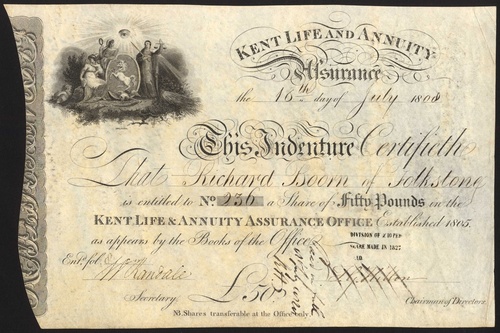 KENT LIFE AND ANNUITY
Assurance
the 16th day of July 1808
This Indenture Certifieth
That Richard Boorn of Folkstone
is entitled to No 236 a Share of Fifty Pounds in the
KENT LIFE & ANNUITY ASSURANCE OFFICE Established 1805.
as appears by the Books of the Office
DIVISION OF
MADE IN 1827
Entd. fol.
W Randale
Secretary.
£50
Chairman of Directors
NB. Shares transferable at the Office only.